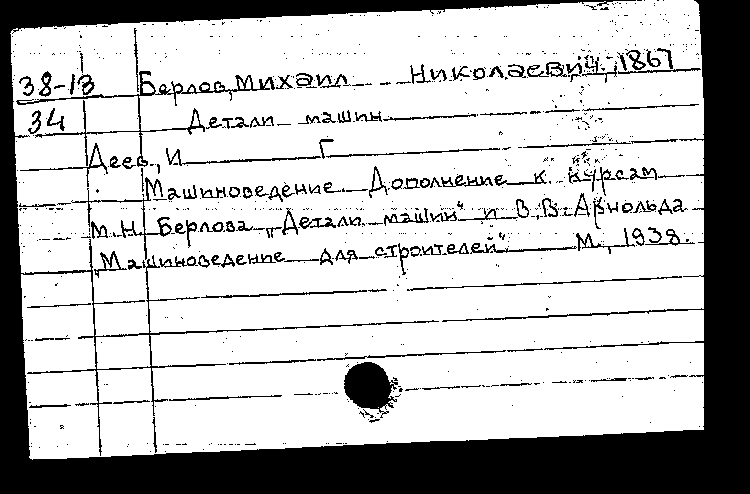 38-13 Берлов, Михаил Николаевич, 1867
34 Детали машин
Деев, И Г
Машиноведение Дополнение к курсам
М.Н. Берлова „Детали машин" и В.В. Арнольда
„Машиноведение для строителей" М., 1938.